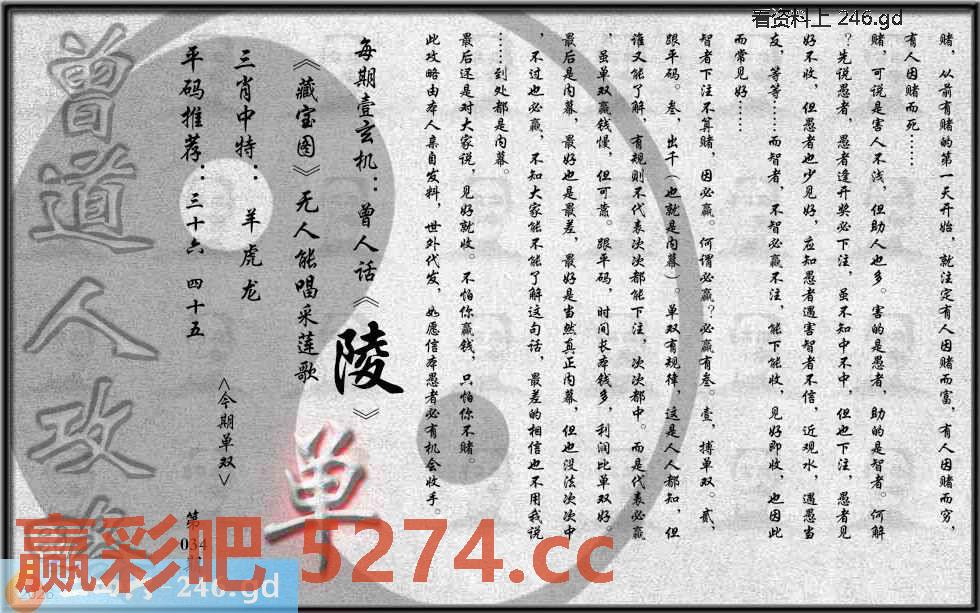 看资料上 246.gd
赌，从前有赌的第一天开始，就注定有人因赌而富，有人因赌而穷，
有人因赌而死……
赌，可说是害人不浅，但助人也多。害的是愚者，助的是智者。何解
？先说愚者，愚者逢开奖必下注，虽不知中不中，但也下注，愚者见
好不收，但愚者也少见好，应知愚者遇害智者不信，近观水，遇愚当
友，等等……而智者，不智必赢不注，能下能收，见好即收，也因此
而常见好……
智者下注不算赌，因必赢。何谓必赢？必赢有叁。壹，搏单双。贰，
跟平码。叁，出千（也就是内幕）。单双有规律，这是人人都知，但
谁又能了解，有规则不代表次次都能下注，次次都中。而是代表必赢
，虽单双赢钱慢，但可靠。跟平码，时间长本钱多，利润比单双好。
最后是内幕，最好也是最差，最好是当然真正内幕，但也没法次次中
，不过也必赢，不知大家能不能了解这句话，最差的相信也不用我说
……到处都是内幕。
最后还是对大家说，见好就收。不怕你赢钱，只怕你不赌。
此攻略由本人亲自发料，世外代发，如愿信本愚者必有机会收手。
每期壹玄机：曾人话《陵》
《藏宝图》无人能唱采莲歌
三肖中特：羊虎龙
平码推荐：三十六 四十五
<今期单双>
单
第034
曾道人攻
赢彩吧 5274.cc
246.gd